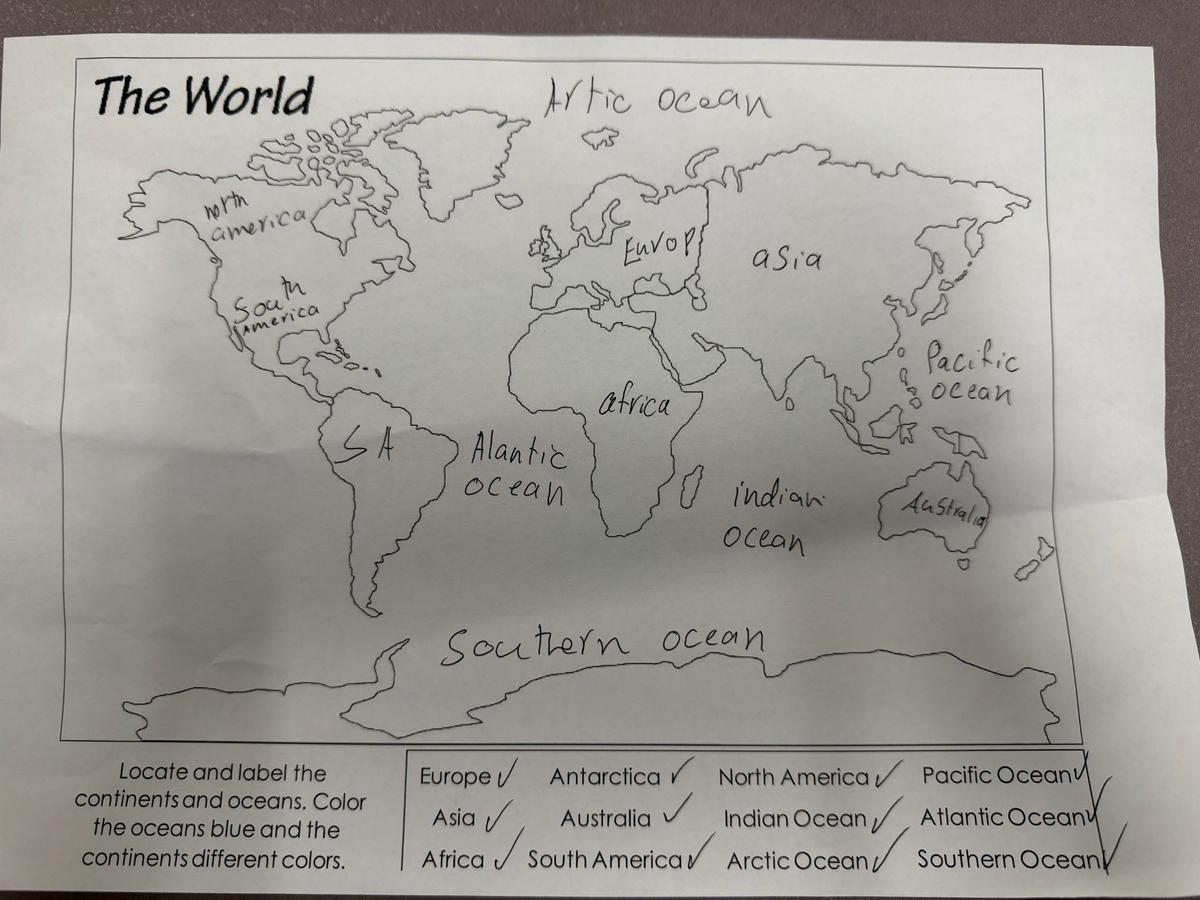 The World
Artic ocean
north
america
Europ
asia
South
America
Pacific
ocean
africa
SA
Alantic
ocean
indian
ocean
Australia
Southern ocean
Locate and label the
continents and oceans. Color
the oceans blue and the
continents different colors.
Europe ✓ Antarctica ✓ North America ✓ Pacific Ocean ✓
Asia ✓ Australia ✓ Indian Ocean ✓ Atlantic Ocean ✓
Africa ✓ South America ✓ Arctic Ocean ✓ Southern Ocean ✓